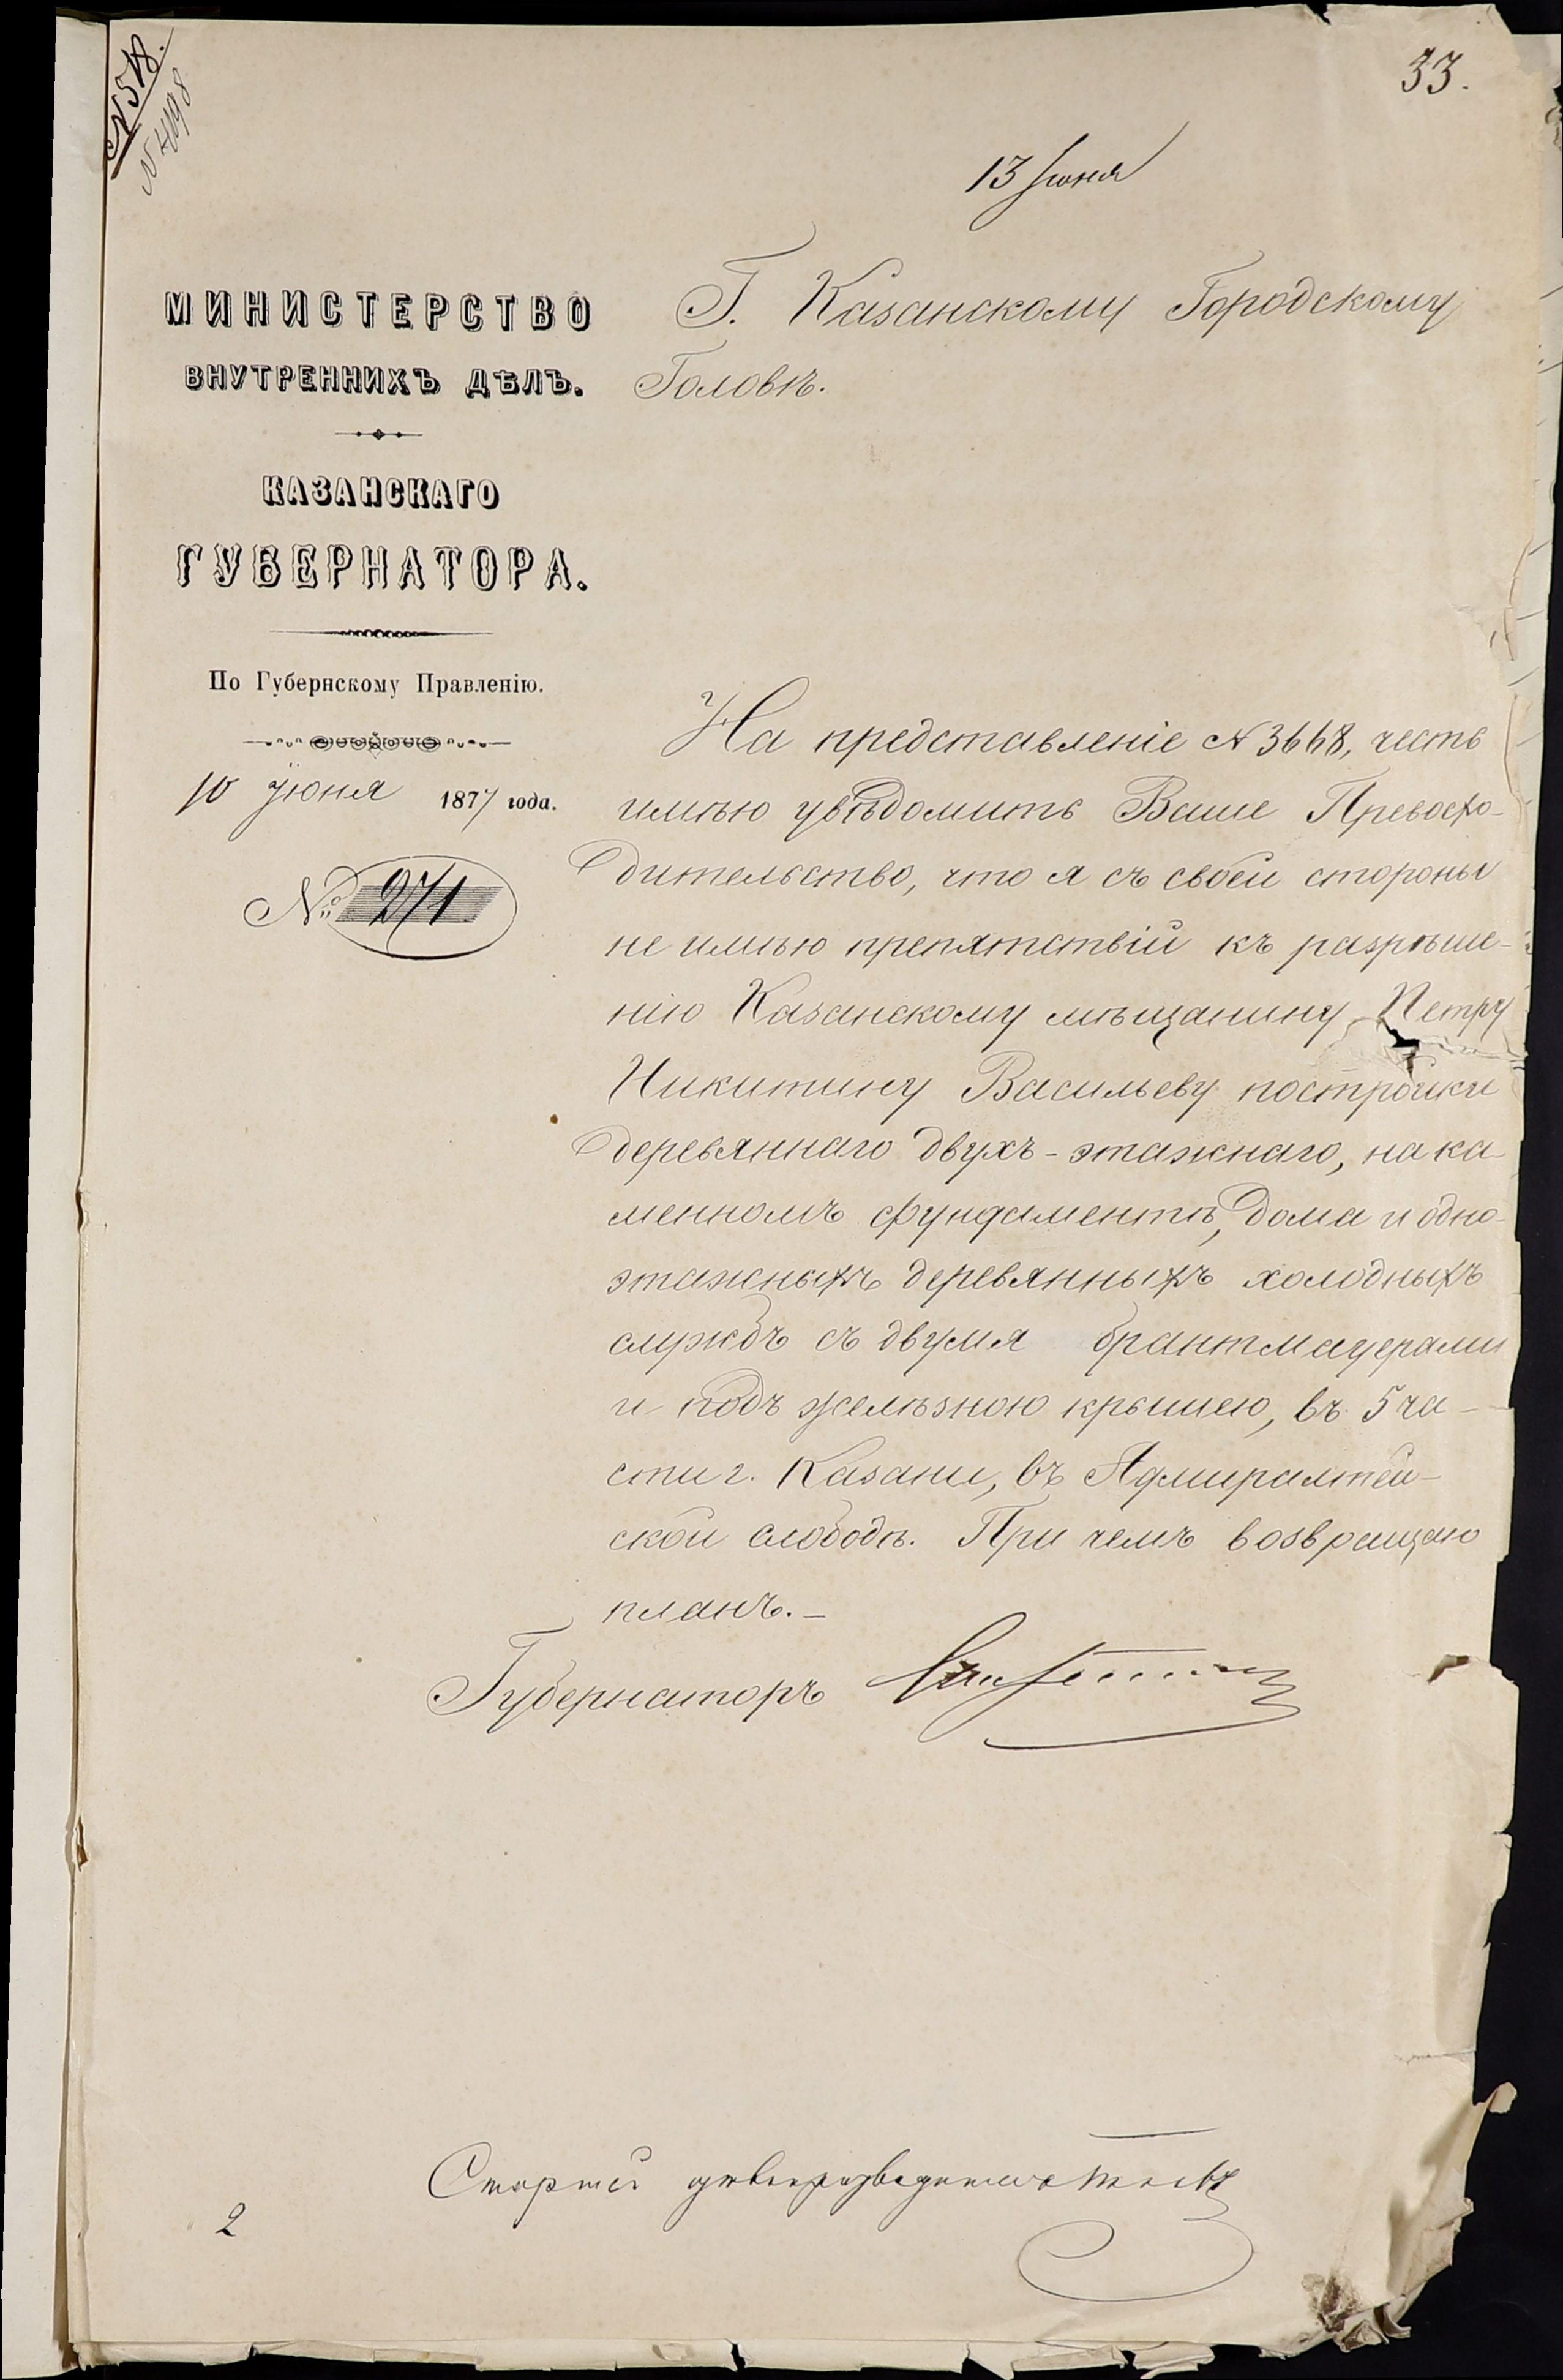 № 518.
№ 4098
33.
13 Іюня
МИНИСТЕРСТВО
ВНУТРЕННИХЪ ДѢЛЪ.
КАЗАНСКАГО
ГУБЕРНАТОРА.
По Губернскому Правленію.
10 Іюня 1877 года.
№ 271
Г. Казанскому Городскому
Головѣ.
На представленіе № 3668, честь
имѣю увѣдомить Ваше Превосхо-
дительство, что я съ своей стороны
не имѣю препятствій къ разрѣше-
нію Казанскому мѣщанину Петру
Никитину Васильеву постройки
деревяннаго двухъ-этажнаго, на ка-
менномъ фундаментѣ, дома и одно-
этажныхъ деревянныхъ холодныхъ
службъ съ двумя брантмауерами
и подъ желѣзною крышею, въ 5 ча-
сти г. Казани, въ Адмиралтей-
ской слободѣ. При чемъ возвращаю
планъ.-
Губернаторъ
2